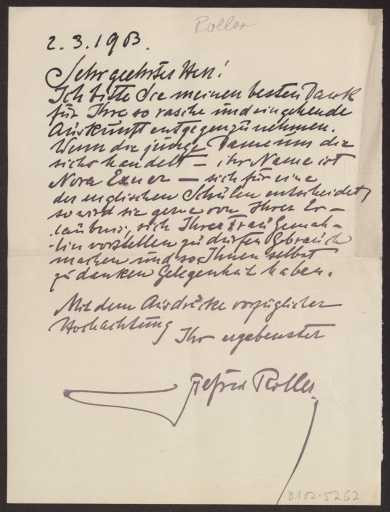 Roller
2.3.1903.
Sehr geehrter Herr!
Ich bitte Sie meinen besten Dank
für Ihre so rasche und eingehende
Auskunft entgegenzunehmen.
Wenn die junge Dame um die
sichs handelt — ihr Name ist
Nora Exner — sich für eine
der englischen Schulen entscheidet,
so wird sie gerne von Ihrer Er-
laubnis, sich Ihrer Frau Gemah-
lin vorstellen zu dürfen Gebrauch
machen und so Ihnen selbst
zu danken Gelegenheit haben.
Mit dem Ausdrucke vorzüglicher
Hochachtung
Ihr ergebenster
Alfred Roller